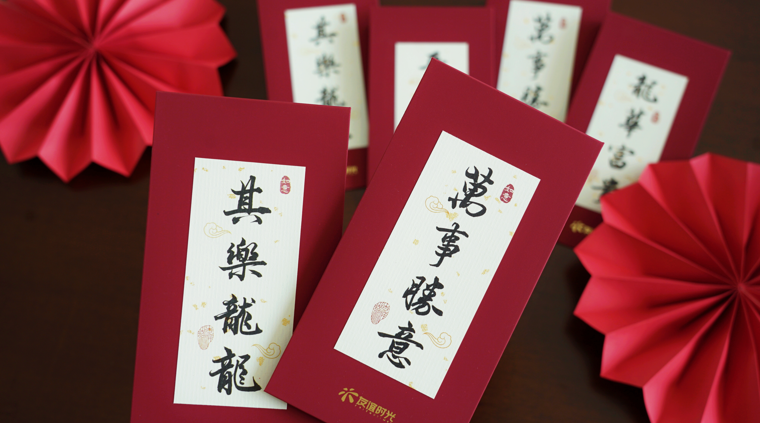 其樂龍
萬事勝
龍華富
其樂龍龍
萬事勝意
友谊时光